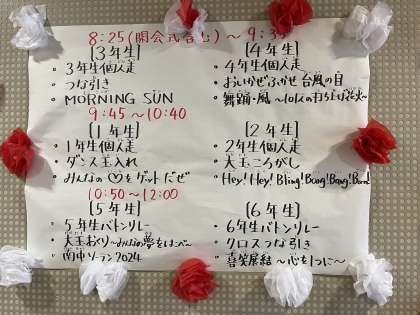 8:25(開会式含む)〜9:35
[3年生]
・3年生個人走
・つな引き
・MORNING SUN
[4年生]
・4年生個人走
・おいかぜふかせ 台風の目
・舞踊・風 〜101人の打ち上げ花火〜
9:45〜10:40
[1年生]
・1年生個人走
・ダンス玉入れ
・みんなの♡をゲットだぜ
[2年生]
・2年生個人走
・大玉ころがし
・Hey! Hey! Bling! Bang! Bang! Born!
10:50〜12:00
[5年生]
・5年生バトンリレー
・大玉おくり〜みんなの夢をはこべ〜
・南中ソーラン2024
[6年生]
・6年生バトンリレー
・クロスつな引き
・喜笑展結〜心を1つに〜